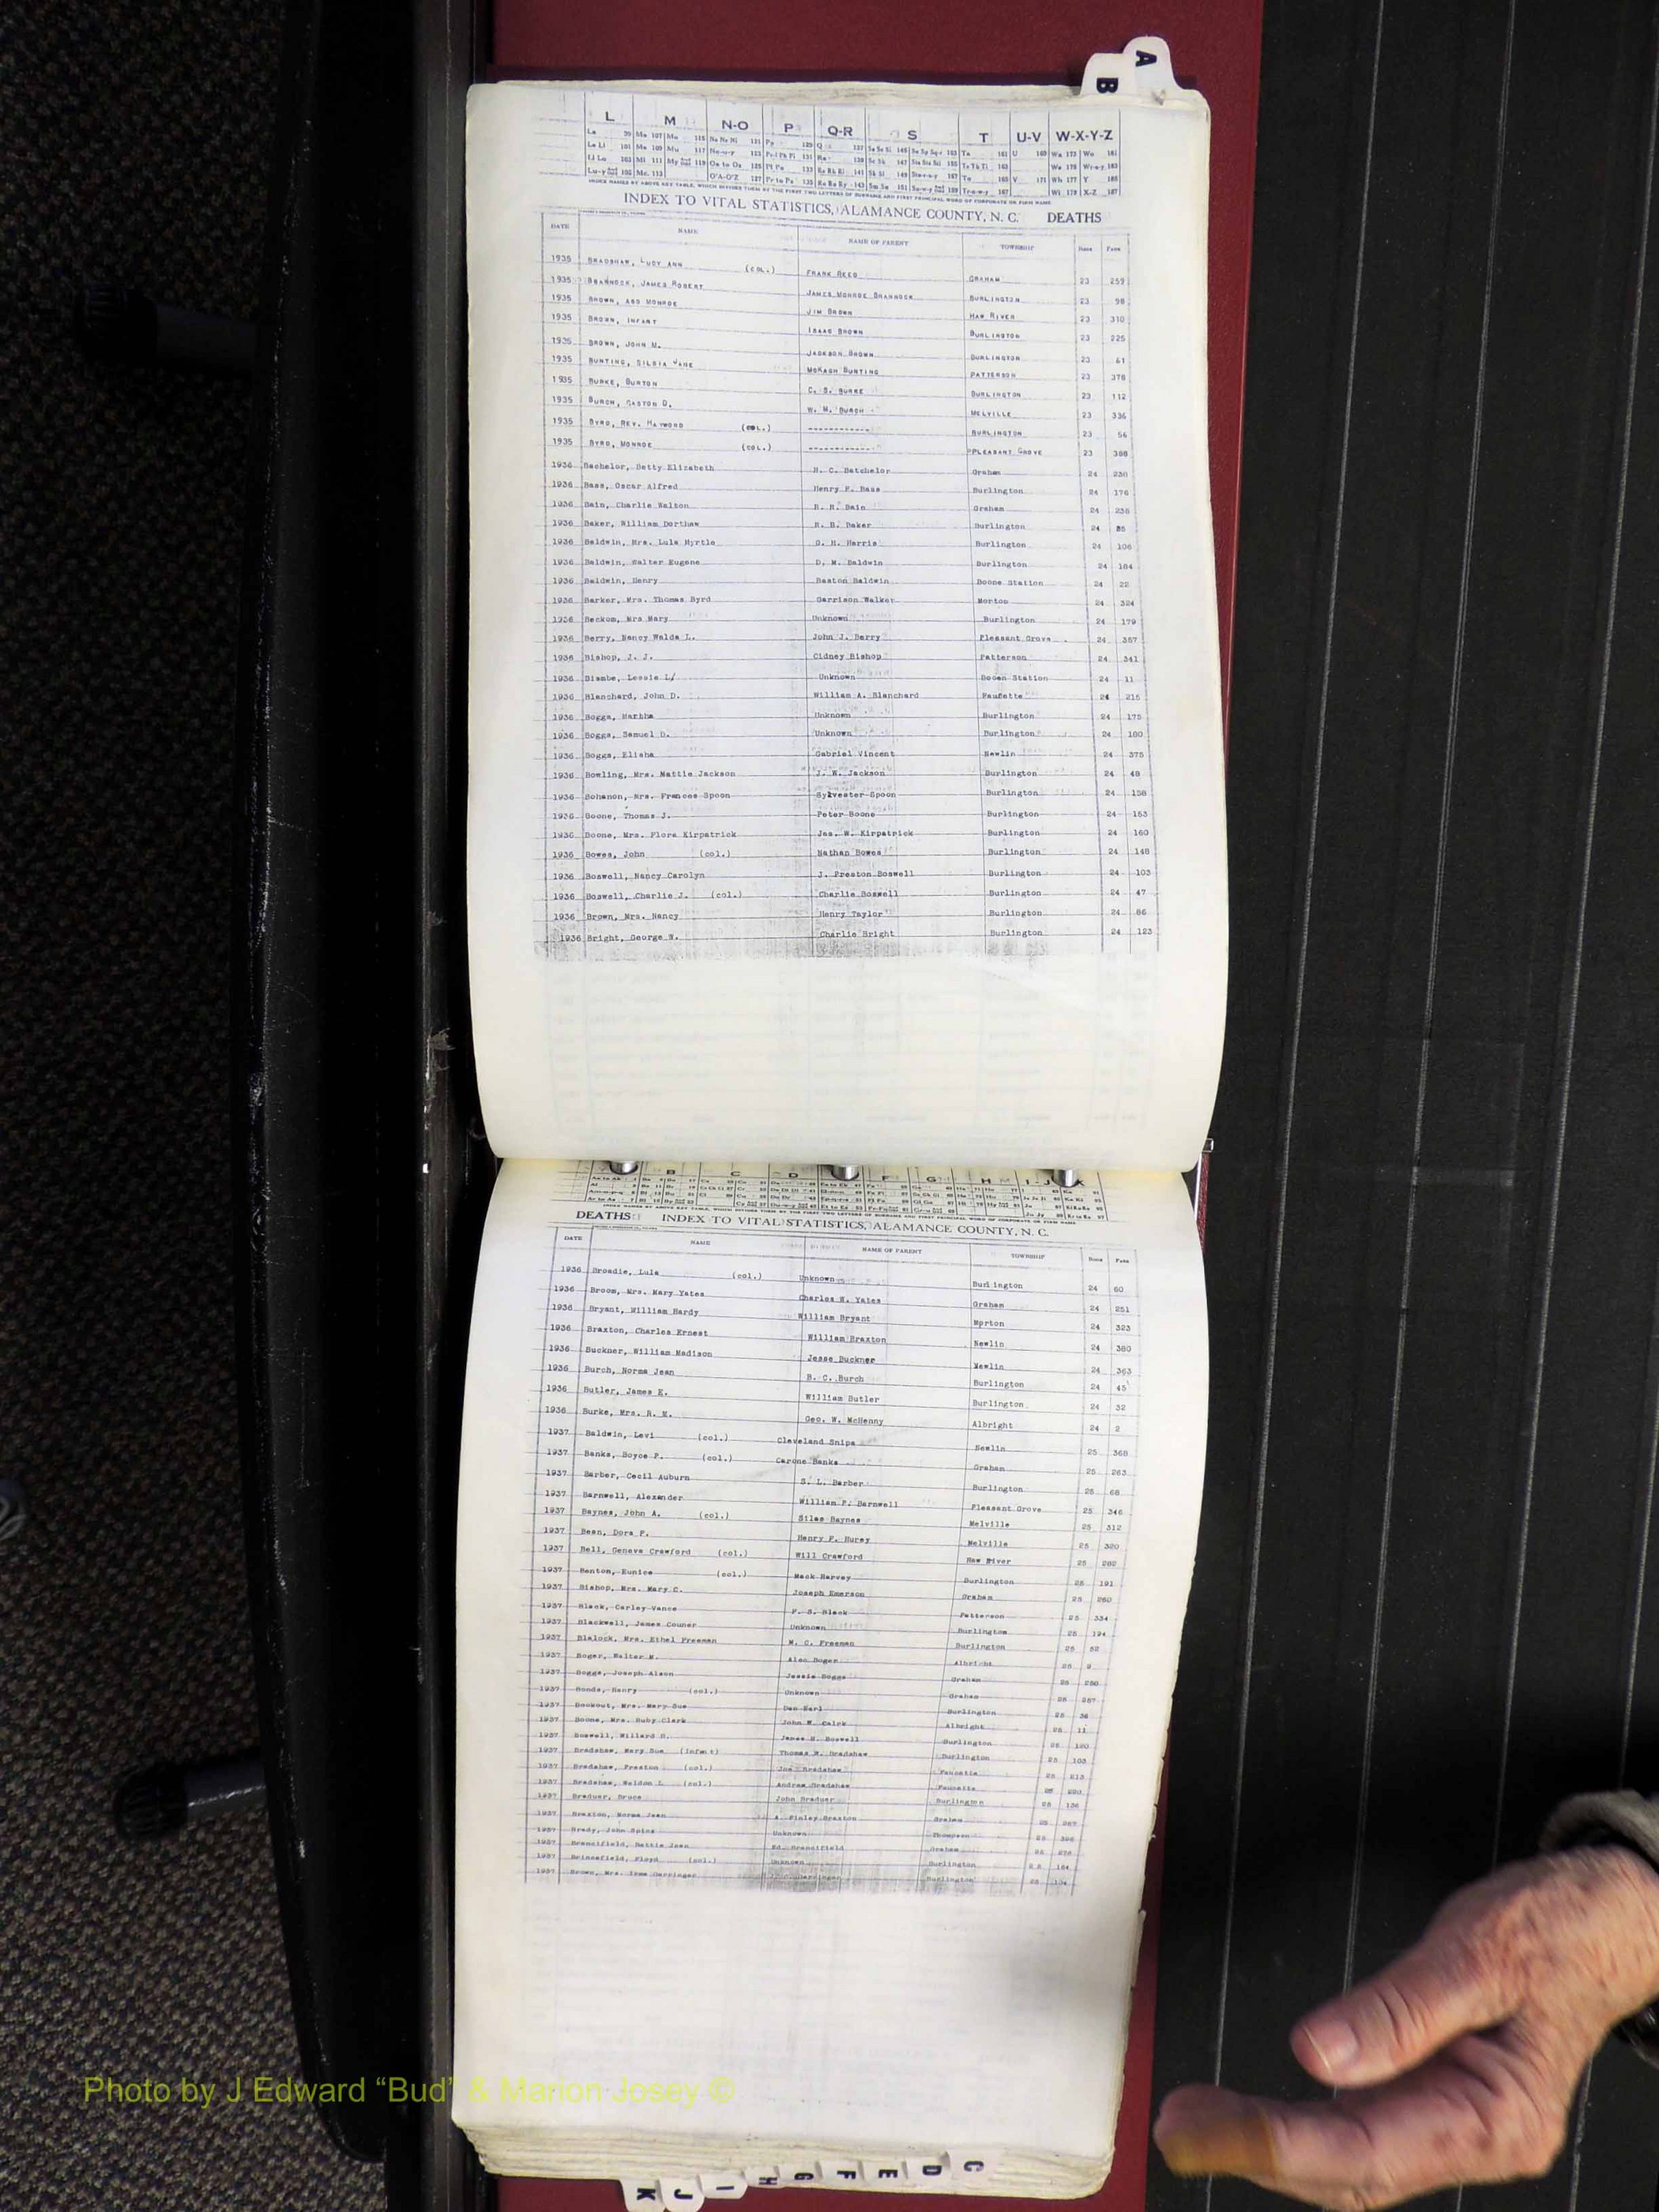 A
B
L M N-O P Q-R S T U-V W-X-Y-Z
INDEX NAMES BY ABOVE KEY TABLE, WHICH DIVIDES THEM BY THE FIRST TWO LETTERS OF SURNAME AND FIRST PRINCIPAL WORD OF CORPORATE OR FIRM NAME
INDEX TO VITAL STATISTICS, ALAMANCE COUNTY, N. C. DEATHS
DATE NAME NAME OF PARENT TOWNSHIP BOOK PAGE
1935 BRADSHAW, LUCY ANN (COL.) FRANK REED GRAHAM 23 259
1935 BRANNOCK, JAMES ROBERT JAMES MONROE BRANNOCK BURLINGTON 23 98
1935 BROWN, ABD MONROE JIM BROWN HAW RIVER 23 310
1935 BROWN, INFANT ISAAC BROWN BURLINGTON 23 225
1935 BROWN, JOHN M. JACKSON BROWN BURLINGTON 23 61
1935 BUNTING, SILBIA JANE MCKAGH BUNTING PATTERSON 23 378
1935 BURKE, BURTON C. S. BURKE BURLINGTON 23 112
1935 BURCH, GASTON D. W. M. BURCH MELVILLE 23 336
1935 BYRD, REV. HAYWOOD (COL.) ------------ BURLINGTON 23 56
1935 BYRD, MONROE (COL.) ------------ PLEASANT GROVE 23 388
1936 Bachelor, Betty Elizabeth H. C. Batchelor Graham 24 236
1936 Bass, Oscar Alfred Henry F. Bass Burlington 24 176
1936 Bain, Charlie Walton R. R. Bain Graham 24 238
1936 Baker, William Dorthaw R. B. Baker Burlington 24 85
1936 Baldwin, Mrs. Lula Myrtle G. H. Harris Burlington 24 106
1936 Baldwin, Walter Eugene D. M. Baldwin Burlington 24 184
1936 Baldwin, Henry Baston Baldwin Boone Station 24 22
1936 Barker, Mrs. Thomas Byrd Garrison Walker Morton 24 324
1936 Beckom, Mrs Mary Unknown Burlington 24 179
1936 Berry, Nancy Walda L. John J. Berry Pleasant Grove 24 387
1936 Bishop, J. J. Cidney Bishop Patterson 24 341
1936 Biambe, Lessie L/ Unknown Booen Station 24 11
1936 Blanchard, John D. William A. Blanchard Faucette 24 215
1936 Boggs, Martha Unknown Burlington 24 175
1936 Boggs, Samuel D. Unknown Burlington 24 180
1936 Boggs, Elisha Gabriel Vincent Newlin 24 375
1936 Bowling, Mrs. Mattie Jackson J. W. Jackson Burlington 24 49
1936 Bohanon, Mrs. Frances Spoon Sylvester Spoon Burlington 24 158
1936 Boone, Thomas J. Peter Boone Burlington 24 153
1936 Boone, Mrs. Flora Kirpatrick Jas. W. Kirpatrick Burlington 24 160
1936 Bowes, John (col.) Nathan Bowes Burlington 24 148
1936 Boswell, Nancy Carolyn J. Preston Boswell Burlington 24 103
1936 Boswell, Charlie J. (col.) Charlie Boswell Burlington 24 47
1936 Brown, Mrs. Nancy Henry Taylor Burlington 24 86
1936 Bright, George W. Charlie Bright Burlington 24 123
B C D F G H I-J K
DEATHS INDEX TO VITAL STATISTICS, ALAMANCE COUNTY, N. C.
DATE NAME NAME OF PARENT TOWNSHIP BOOK PAGE
1936 Broadie, Lula (col.) Unknown Burlington 24 60
1936 Broom, Mrs. Mary Yates Charles W. Yates Graham 24 251
1936 Bryant, William Hardy William Bryant Morton 24 323
1936 Braxton, Charles Ernest William Braxton Newlin 24 380
1936 Buckner, William Madison Jesse Buckner Newlin 24 363
1936 Burch, Norma Jean B. C. Burch Burlington 24 45
1936 Butler, James E. William Butler Burlington 24 32
1936 Burke, Mrs. R. M. Geo. W. McHenny Albright 24 2
1937 Baldwin, Levi (col.) Cleveland Snipe Newlin 25 368
1937 Banks, Boyce P. (col.) Carone Banks Graham 25 263
1937 Barber, Cecil Auburn S. L. Barber Burlington 25 68
1937 Barnwell, Alexander William P. Barnwell Pleasant Grove 25 346
1937 Baynes, John A. (col.) Silas Baynes Melville 25 312
1937 Bean, Dora F. Henry F. Hurey Melville 25 320
1937 Bell, Geneva Crawford (col.) Will Crawford Haw River 25 282
1937 Benton, Eunice (col.) Mack Harvey Burlington 25 191
1937 Bishop, Mrs. Mary C. Joseph Emerson Graham 25 260
1937 Black, Carley Vance P. S. Black Patterson 25 334
1937 Blackwell, James Couner Unknown Burlington 25 194
1937 Blalock, Mrs. Ethel Freeman M. C. Freeman Burlington 25 52
1937 Boger, Walter M. Alec Boger Albright 25 9
1937 Boggs, Joseph Alson Jessie Boggs Graham 25
1937 Bonds, Henry (col.) Unknown Graham 25 257
1937 Bookout, Mrs. Mary Sue Dan Earl Burlington 25 36
1937 Boone, Mrs. Ruby Clark John M. Calrk Albright 25 11
1937 Boswell, Willard H. James H. Boswell Burlington 25 120
1937 Bradshaw, Mary Sue (Infant) Thomas M. Bradshaw Burlington 25 103
1937 Bradshaw, Preston (col.) Joe Bradshaw Faucette 25 213
1937 Bradshaw, Weldon L (col.) Andrew Bradshaw Faucette 25 220
1937 Braduer, Bruce John Braduer Burlington 25 136
1937 Braxton, Norma Jean A. Finley Braxton Graham 25 267
1937 Brady, John Spinx Unknown Thompson 25 396
1937 Brancifield, Bettie Jean Ed. Brancifield Graham 25 276
1937 Brincefield, Floyd (col.) Unknown Burlington 25 184
1937 Brown, Mrs. Irma Gerringer Gerringer Burlington 25 104
Photo by J Edward “Bud” & Marion Josey ©
C D E F G H I J K